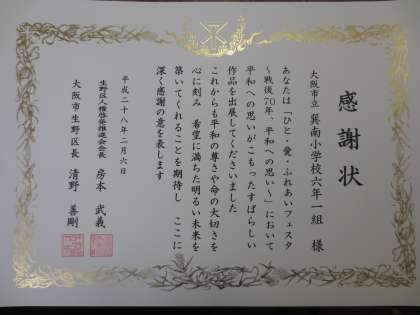 感謝状
大阪市立 巽南小学校六年一組 様
あなたは「ひと・愛・ふれあいフェスタ
～戦後70年、平和への思い～」において
平和への思いがこもったすばらしい
作品を出展してくださいました
これからも平和の尊さや命の大切さを
心に刻み 希望に満ちた明るい未来を
築いてくれることを期待し ここに
深く感謝の意を表します
平成二十八年二月六日
生野区人権啓発推進会会長 房本 武義
大阪市生野区長 清野 善剛